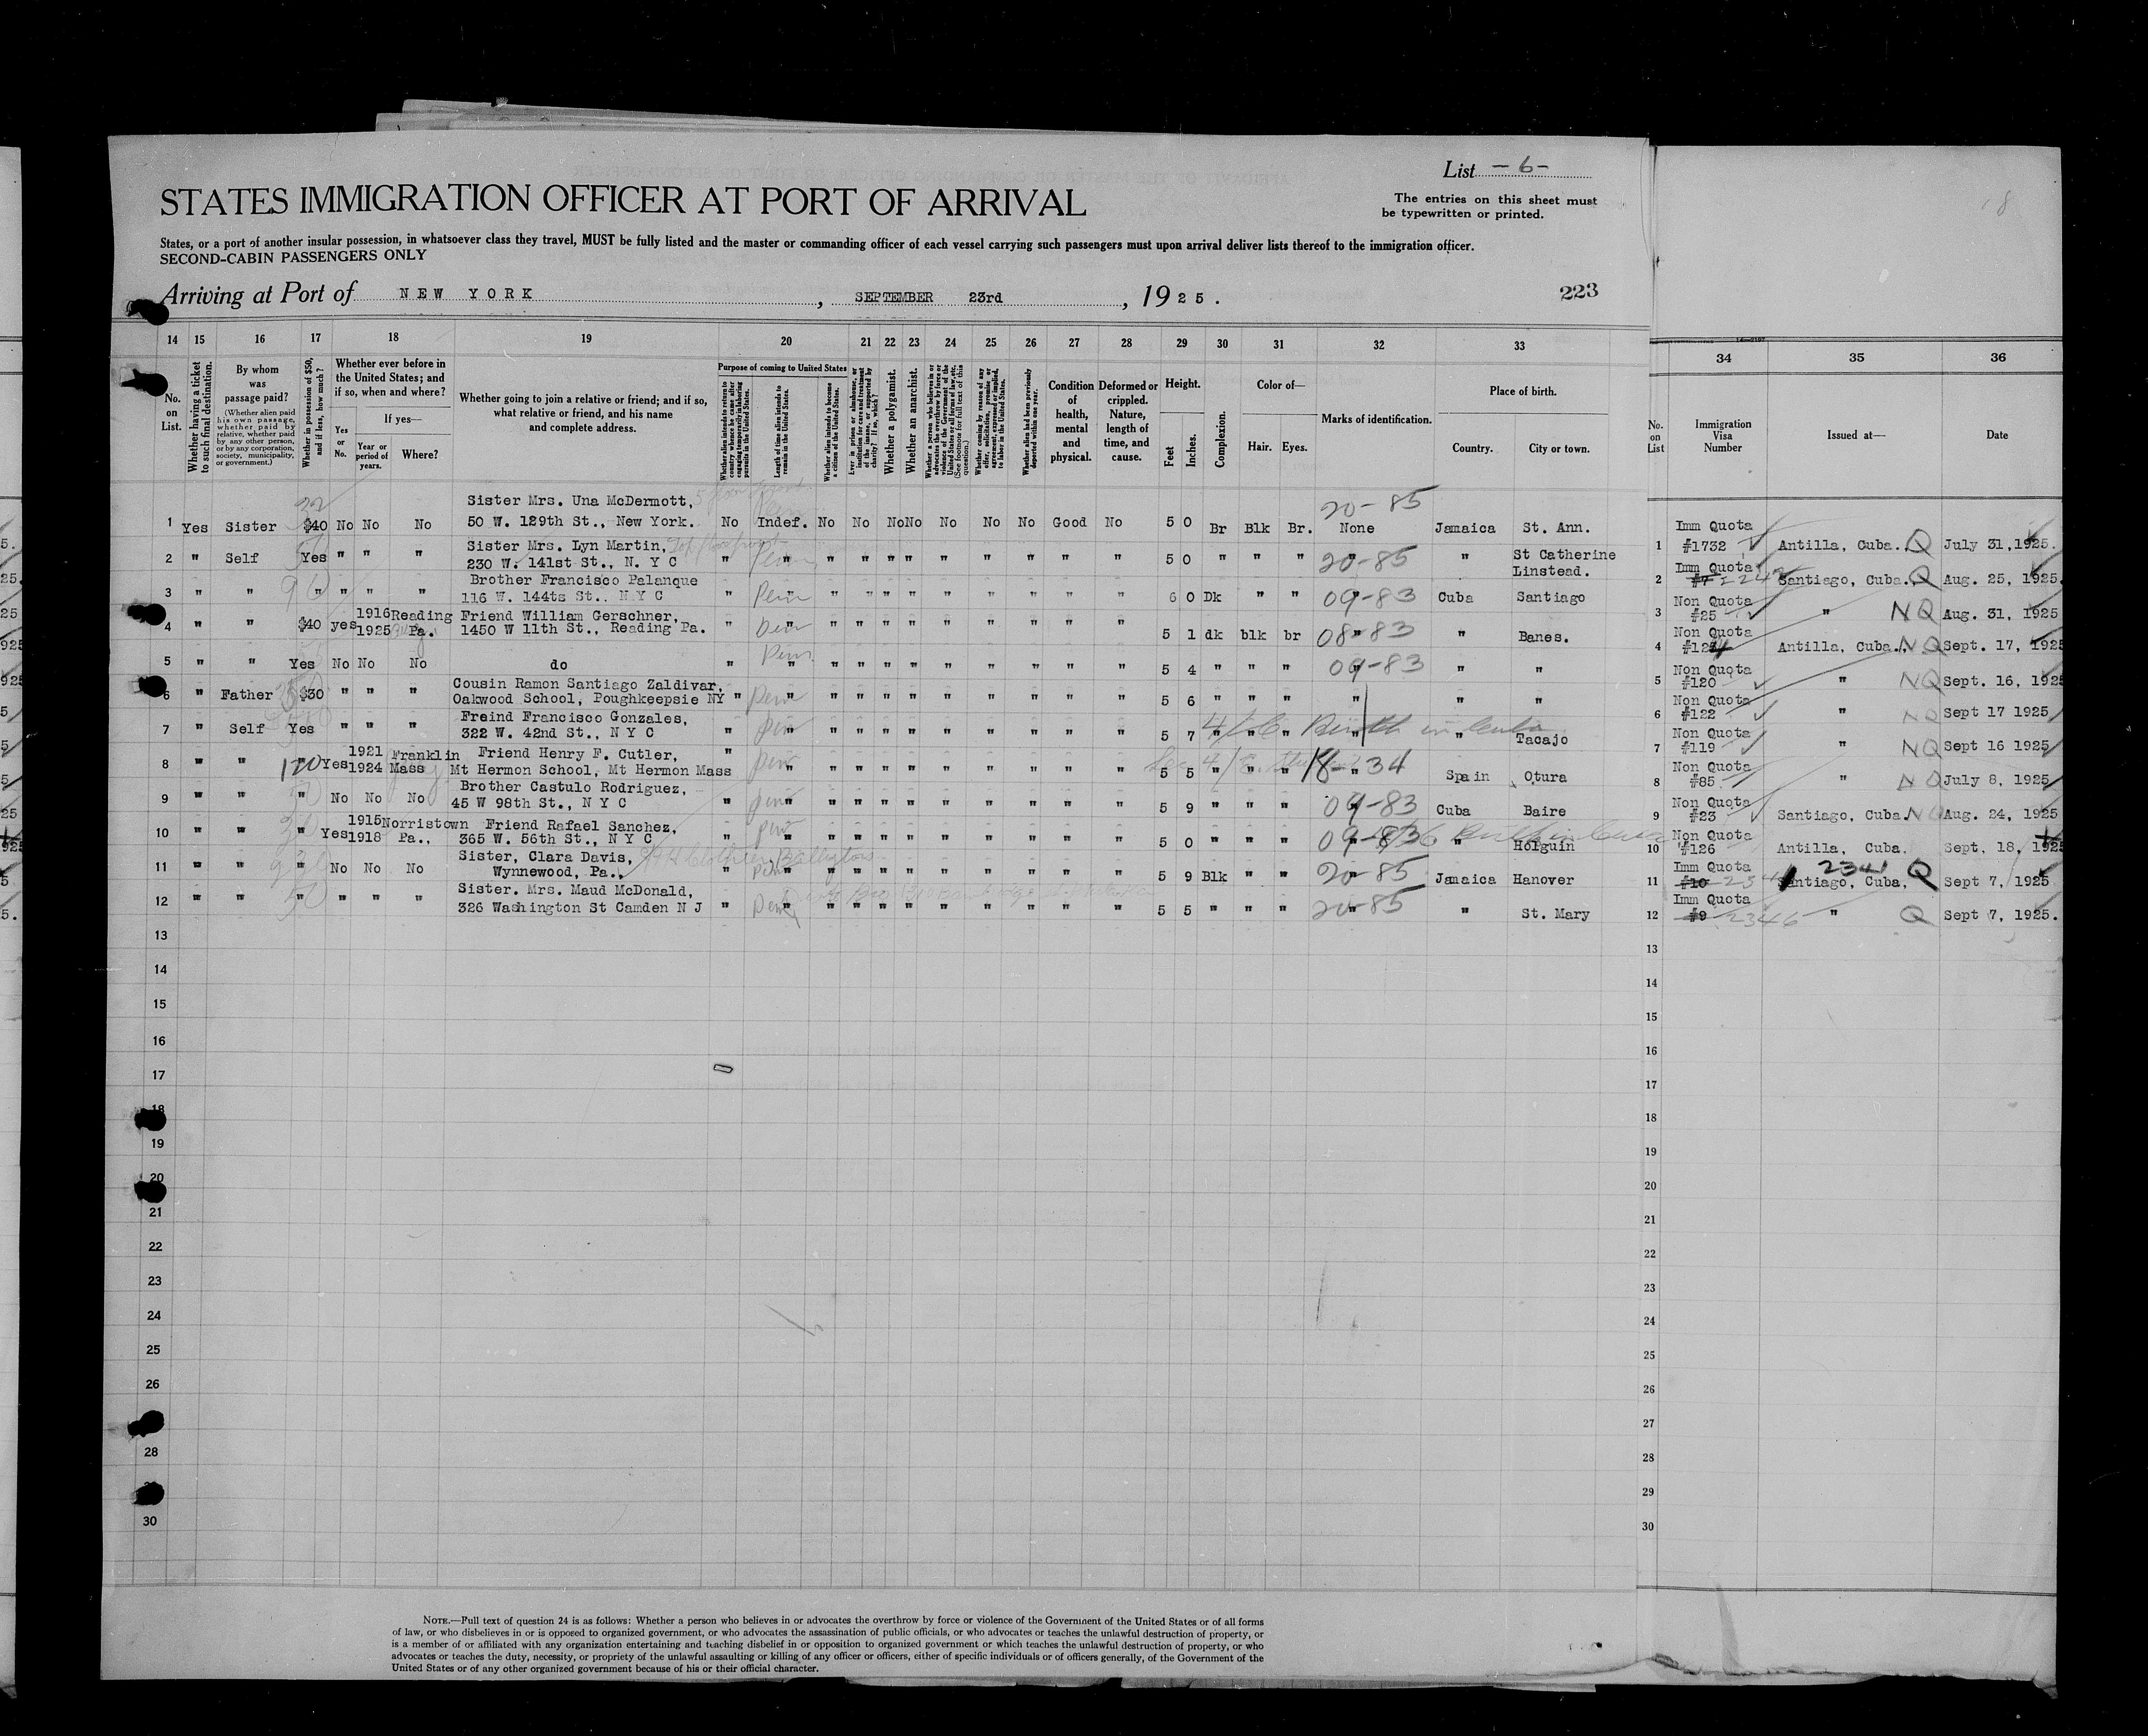 List - 6 -
STATES IMMIGRATION OFFICER AT PORT OF ARRIVAL
The entries on this sheet must
be typewritten or printed.
States, or a port of another insular possession, in whatsoever class they travel, MUST be fully listed and the master or commanding officer of each vessel carrying such passengers must upon arrival deliver lists thereof to the immigration officer.
SECOND-CABIN PASSENGERS ONLY
Arriving at Port of NEW YORK, SEPTEMBER 23rd, 1925.
223
14 15 16 17 18 19 20 21 22 23 24 25 26 27 28 29 30 31 32 33 34 35 36
No. on List.
Whether having a ticket to such final destination.
By whom was passage paid?
(Whether alien paid his own passage, whether paid by relative, whether paid by any other person, or by any corporation, society, municipality, or government.)
Whether in possession of $50, and if less, how much?
Whether ever before in the United States; and if so, when and where?
Yes or No.
If yes—
Year or period of years.
Where?
Whether going to join a relative or friend; and if so, what relative or friend, and his name and complete address.
Purpose of coming to United States
Whether alien intends to return to country whence he came after engaging temporarily in laboring pursuits in the United States.
Length of time alien intends to remain in the United States.
Whether alien intends to become a citizen of the United States.
Ever in prison or almshouse, or institution for care and treatment of the insane, or supported by charity? If so, which?
Whether a polygamist.
Whether an anarchist.
Whether a person who believes in or advocates the overthrow by force or violence of the Government of the United States or all forms of law, etc. (See footnote for full text of this question.)
Whether coming by reason of any offer, solicitation, promise or agreement, expressed or implied, to labor in the United States.
Whether alien had been previously deported within one year.
Condition of health, mental and physical.
Deformed or crippled. Nature, length of time, and cause.
Height.
Feet
Inches.
Complexion.
Color of—
Hair. Eyes.
Marks of identification.
Place of birth.
Country. City or town.
No. on List
Immigration Visa Number
Issued at—
Date
1 Yes Sister $40 No No No Sister Mrs. Una McDermott,
50 W. 129th St., New York. No Indef. No No No No No No No Good No 5 0 Br Blk Br. None 20-85 Jamaica St. Ann. 1 Imm Quota #1732 Antilla, Cuba. Q July 31,1925.
2 " Self Yes " " " Sister Mrs. Lyn Martin,
230 W. 141st St., N. Y C " " " " " " " " " " " 5 0 " " " 20-85 " St Catherine Linstead. 2 Imm Quota Santiago, Cuba. Q Aug. 25, 1925.
3 " " " " " " Brother Francisco Palanque
116 W. 144ts St., N Y C " Perm " " " " " " " " " 6 0 Dk " " 09-83 Cuba Santiago 3 Non Quota #25 " NQ Aug. 31, 1925
4 " " $40 yes 1916 1925 Reading Pa. Friend William Gerschner,
1450 W 11th St., Reading Pa. " " " " " " " " " " " 5 1 dk blk br 08-83 " Banes. 4 Non Quota #124 Antilla, Cuba. NQ Sept. 17, 1925
5 " " Yes No No No do " Perm " " " " " " " " " " 5 4 " " " 09-83 " " 5 Non Quota #120 " NQ Sept. 16, 1925
6 " Father $30 " " " Cousin Ramon Santiago Zaldivar,
Oakwood School, Poughkeepsie NY " " " " " " " " " " " 5 6 " " " " " " 6 Non Quota #122 " NQ Sept 17 1925
7 " Self Yes " " " Freind Francisco Gonzales,
322 W. 42nd St., N Y C " " " " " " " " " " " 5 7 " " " " " Tacajo 7 Non Quota #119 " NQ Sept 16 1925
8 " " 120 Yes 1921 1924 Franklin Mass Friend Henry F. Cutler,
Mt Hermon School, Mt Hermon Mass " " " " " " " " " " " 5 5 " " " 18-34 Spain Otura 8 Non Quota #85 " NQ July 8, 1925
9 " " " No No No Brother Castulo Rodriguez,
45 W 98th St., N Y C " " " " " " " " " " " 5 9 " " " 09-83 Cuba Baire 9 Non Quota #23 Santiago, Cuba. NQ Aug. 24, 1925
10 " " " Yes 1915 1918 Norristown Pa., Friend Rafael Sanchez,
365 W. 56th St., N Y C " " " " " " " " " " " 5 0 " " " 09-83 " Holguin 10 Non Quota #126 Antilla, Cuba. Sept. 18, 1925
11 " " " No No No Sister, Clara Davis,
Wynnewood, Pa., " " " " " " " " " " " 5 9 Blk " " 20-85 Jamaica Hanover 11 Imm Quota #10 2341 Santiago, Cuba, Q Sept 7, 1925
12 " " " " " " Sister. Mrs. Maud McDonald,
326 Washington St Camden N J " " " " " " " " " " " 5 5 " " " 20-85 " St. Mary 12 Imm Quota #9 2346 " Q Sept 7, 1925.
13 13
14 14
15 15
16 16
17 17
18 18
19 19
20 20
21 21
22 22
23 23
24 24
25 25
26 26
27
28 28
29
30 30
NOTE.—Full text of question 24 is as follows: Whether a person who believes in or advocates the overthrow by force or violence of the Government of the United States or of all forms
of law, or who disbelieves in or is opposed to organized government, or who advocates the assassination of public officials, or who advocates or teaches the unlawful destruction of property, or
is a member of or affiliated with any organization entertaining and teaching disbelief in or opposition to organized government or which teaches the unlawful destruction of property, or who
advocates or teaches the duty, necessity, or propriety of the unlawful assaulting or killing of any officer or officers, either of specific individuals or of officers generally, of the Government of the
United States or of any other organized government because of his or their official character.